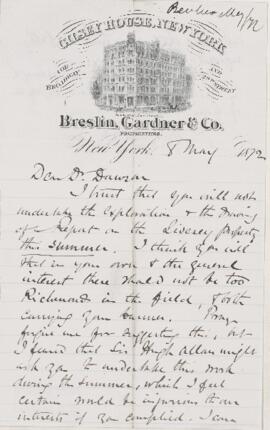 GILSEY HOUSE, NEW YORK
BROADWAY
AND
AND
29TH STREET
Breslin, Gardner & Co.
PROPRIETORS.
New York, 8 May 1872
Dear Dr. Dawson
I trust that you will not
undertake the exploration & the drawing
of Report on the property
this summer. I think you will
that in your own & the general
interest there should not be too
Richmonds in the field, both
carrying your banner. Pray
forgive me for suggesting this, but
I feared that Sir Hugh Allan might
ask you to undertake this work
during the summer, which I feel
certain would be injurious to our
interests if you complied. I can